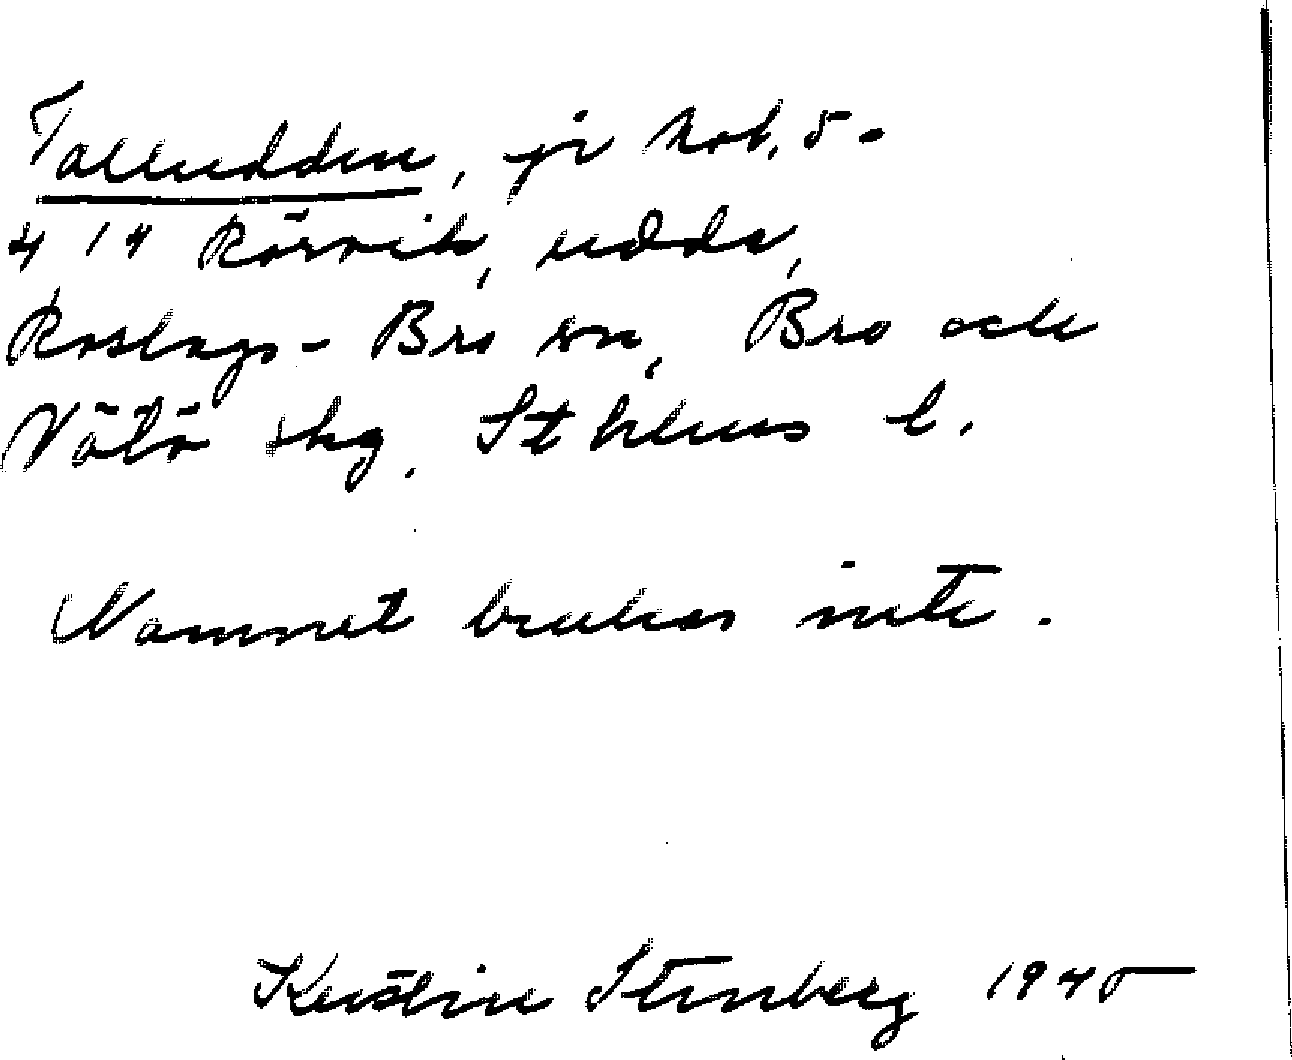 Talludden, jr kob. 5-
4 14 Rörvik, udde,
Roslags-Bro sn, Bro och
Vätö skg. Sthlms l.
Namnet brukas inte.
Kerstin Stenberg 1945